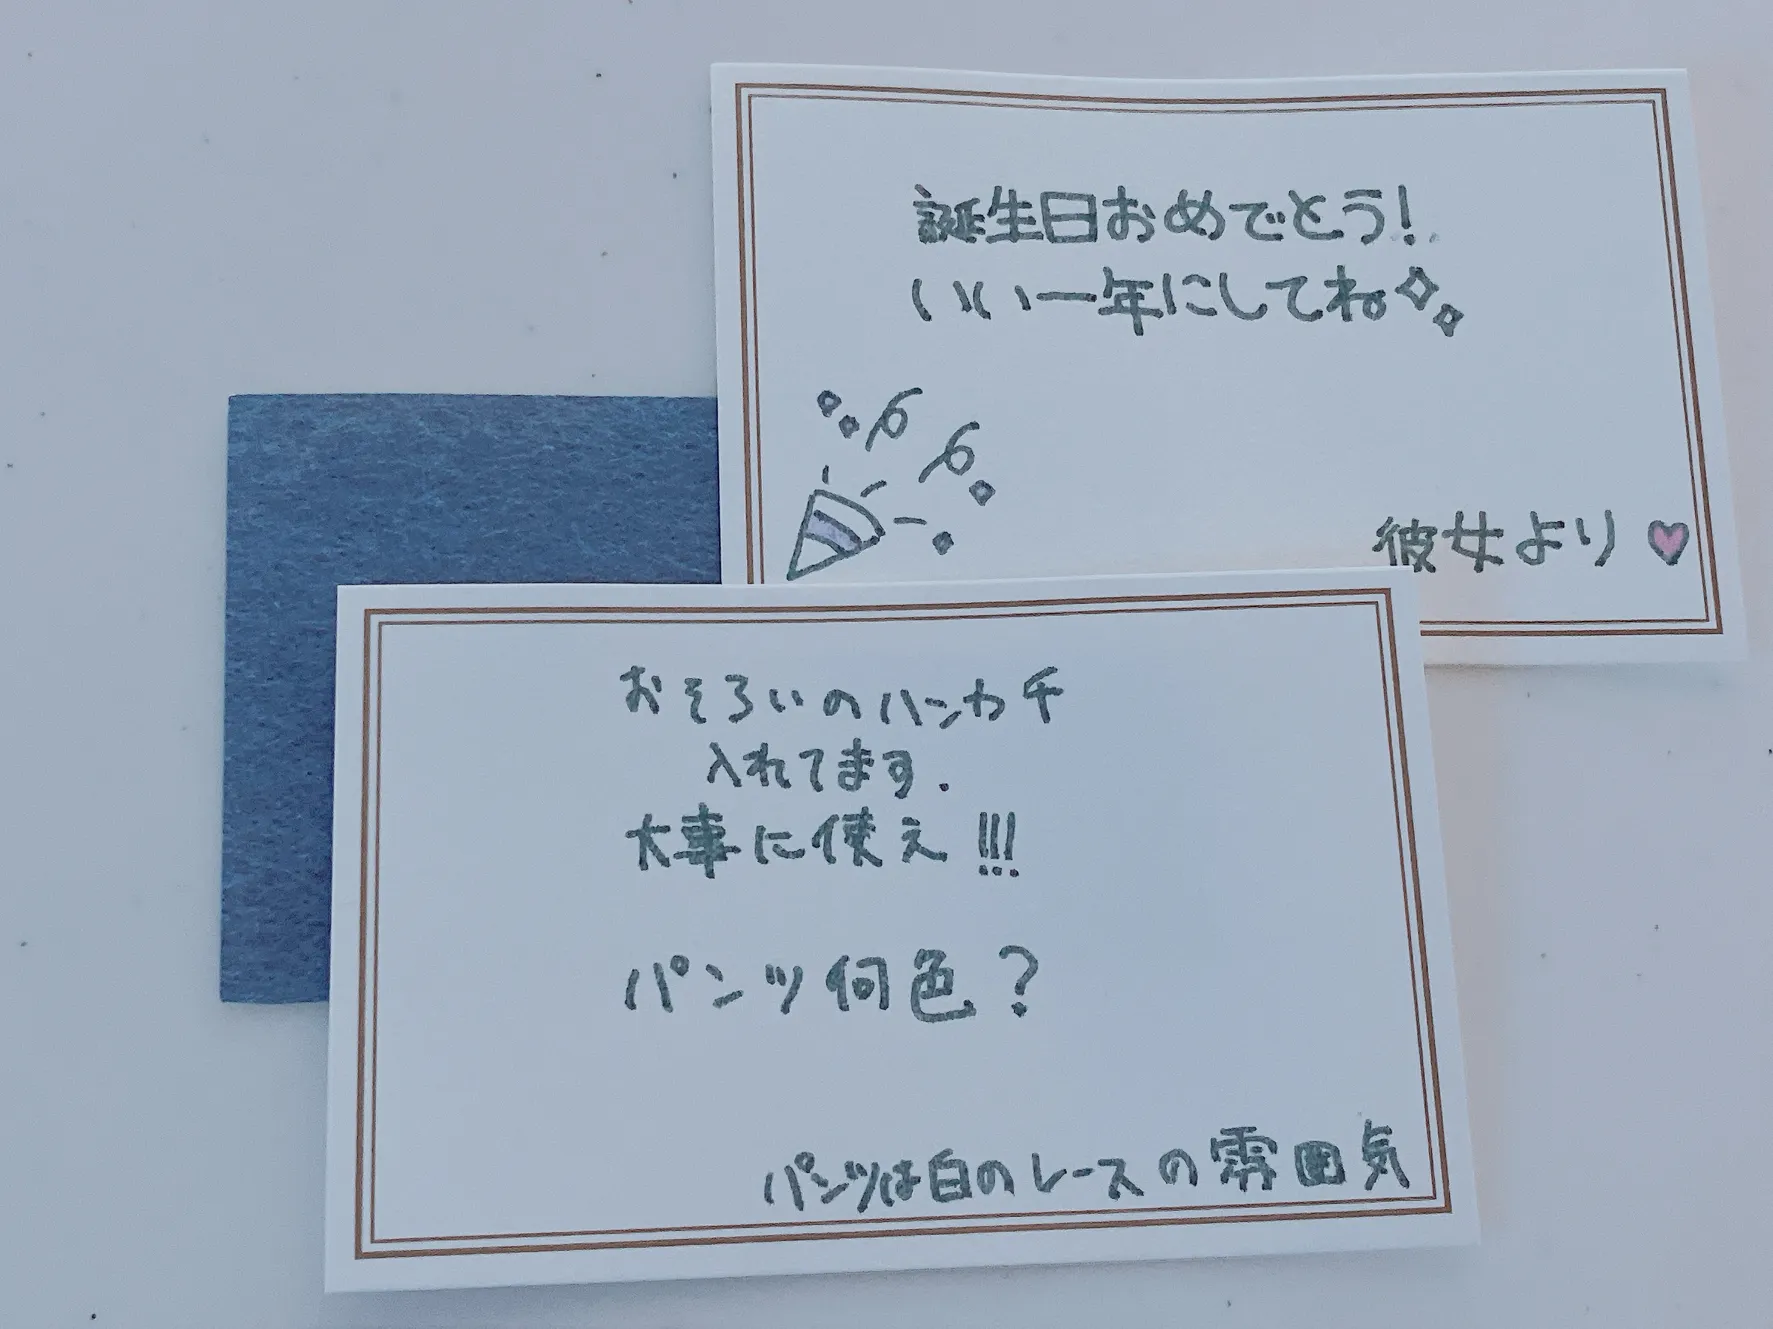 誕生日おめでとう!
いい一年にしてね
彼女より
おそろいのハンカチ
入れてます.
大事に使え!!!
パンツ何色?
パンツは白のレースの雰囲気